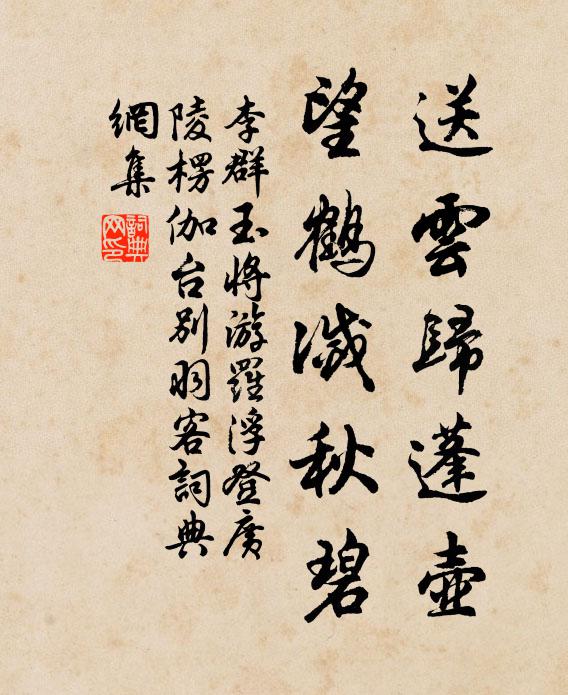 送雲歸蓬壺
望鶴滅秋碧
李群玉將游羅浮登廣
陵楞伽台別羽客詞典
網集
詞典
网印